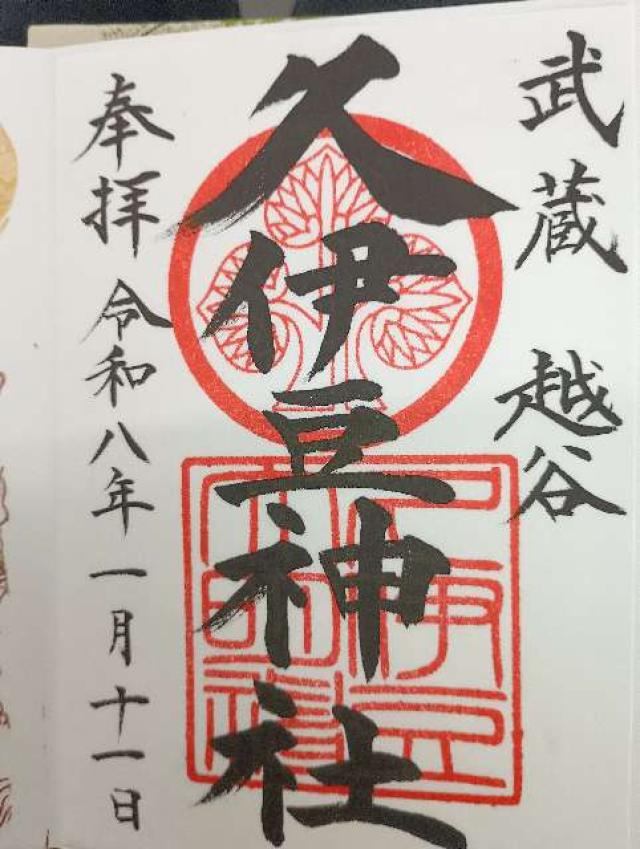 武蔵 越谷
久伊豆神社
奉拝 令和八年一月十一日